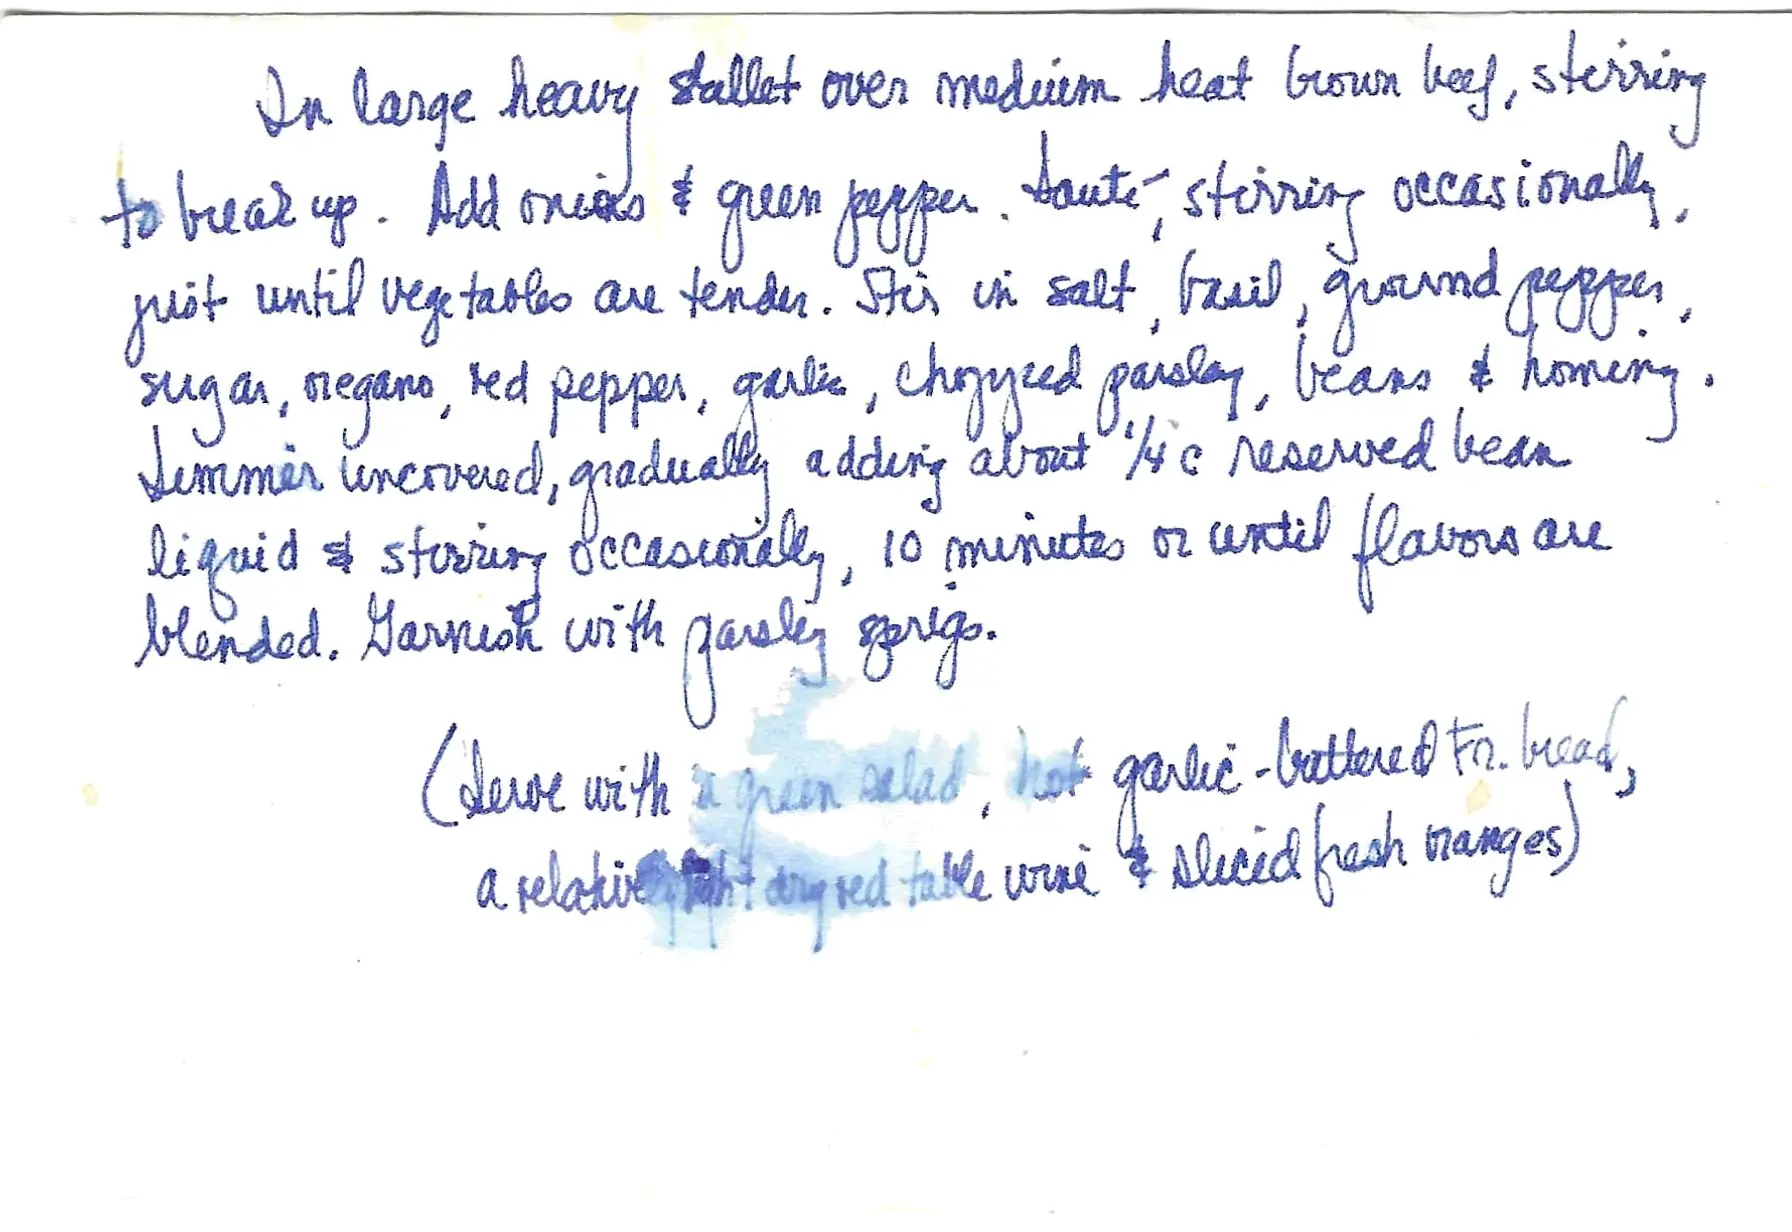 In large heavy skillet over medium heat brown beef, stirring
to break up. Add onions & green pepper. Sauté, stirring occasionally,
just until vegetables are tender. Stir in salt, basil, ground pepper,
sugar, oregano, red pepper, garlic, chopped parsley, beans & hominy.
Simmer uncovered, gradually adding about 1/4 c reserved bean
liquid & stirring occasionally, 10 minutes or until flavors are
blended. Garnish with parsley sprigs.
(Serve with a green salad, hot garlic-buttered Fr. bread,
a relatively light dry red table wine & sliced fresh oranges)